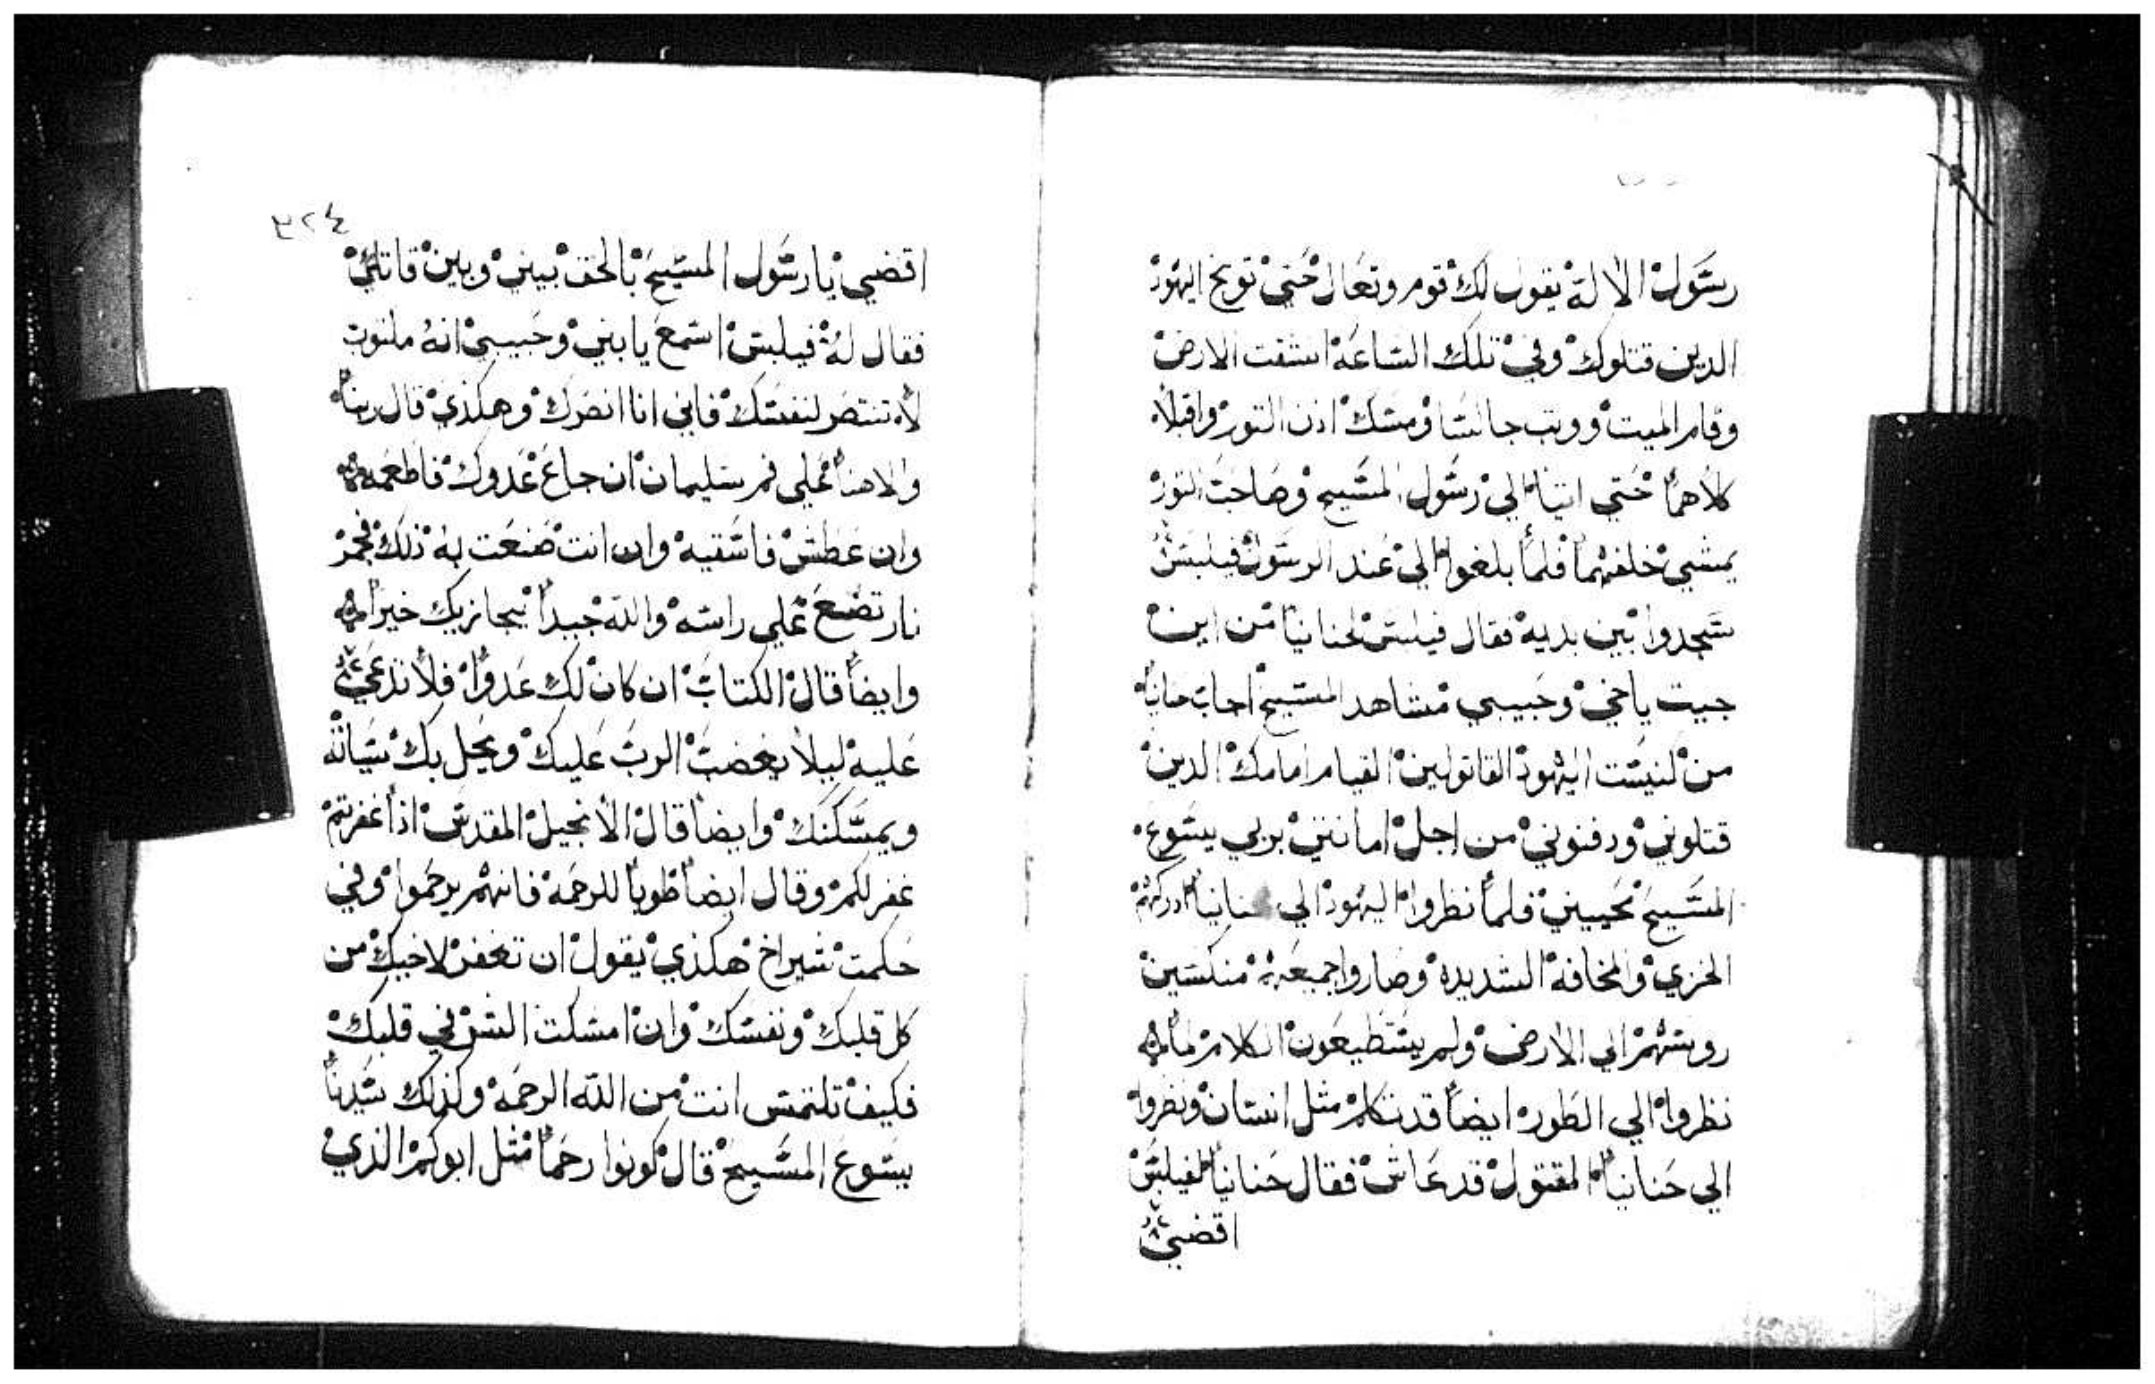 رسول الالة يقول لك قوم وتعال حتي توبخ اليهود
الدين قتلوك وفي تلك الساعه انشقت الارض
وقام الميت ووتب جالسا ومسك ادن التور واقبلا
كلاهما حتي اتيا الي رسول المسيح وصاحب التور
يمشي خلفهما فلما بلغوا الي عند الرسول فيلبس
سجدوا بين يديه فقال فيلبس لحنانيا من اين
جيت ياخي وحبيبي مشاهد المسيح اجاب حنانيا
من كنيست اليهود القاتولين القيام امامك الدين
قتلوني ودفنوني من اجل امانتي بربي يسوع
المسيح تحييني فلما نظروا اليهود الي حنانيا ادركهم
الخزي والمخافه الشديده وصاروا جميعهم منكسين
روسهم الي الارض ولم يستطيعون الكلام لما
نظروا الي الطور ايضا قد تكلم مثل انسان ونظروا
الي حنانيا المقتول قد عاش فقال حنانيا لفيلبس
اقضي
٣٢٤
اقضي يا رسول المسيح بالحق بيني وبين قاتلي
فقال له فيلبس اسمع يا بني وحبيبي انه مكتوب
لا تنتصر لنفسك فاني انا انصرك وهكذي قال ربنا
والاهنا علي فم سليمان ان جاع عدوك فاطعمه
وان عطش فاسقيه وان انت صنعت به ذلك فجمر
نار تضع علي راسه والله جيدا يجازيك خيرا
وايضا قال الكتاب ان كان لك عدوا فلا تدعي
عليه ليلا يغضب الرب عليك ويحل بك سياته
ويمسكنك وايضا قال الانجيل المقدس اذا غفرتم
غفر لكم وقال ايضا طوبا للرحمه فانهم يرحموا وفي
حكمت شيراخ هكذي يقول ان تغفر لاخيك من
كل قلبك ونفسك وان امسكت الشر في قلبك
فكيف تلتمس انت من الله الرحمه وكذلك سيدنا
يسوع المسيح قال كونوا رحما مثل ابوكم الذي